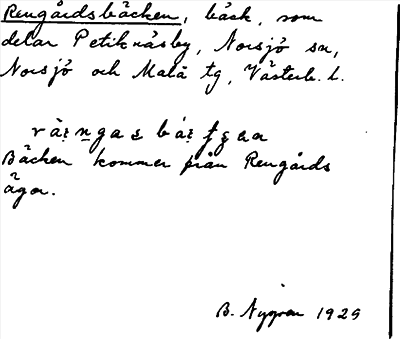 Rengårdsbäcken, bäck, som
delar Petiknäsby, Norsjö sn,
Norsjö och Malå tg, Västerb. l.
Bäcken kommer från Rengårds
ägor.
B. Nygren 1929